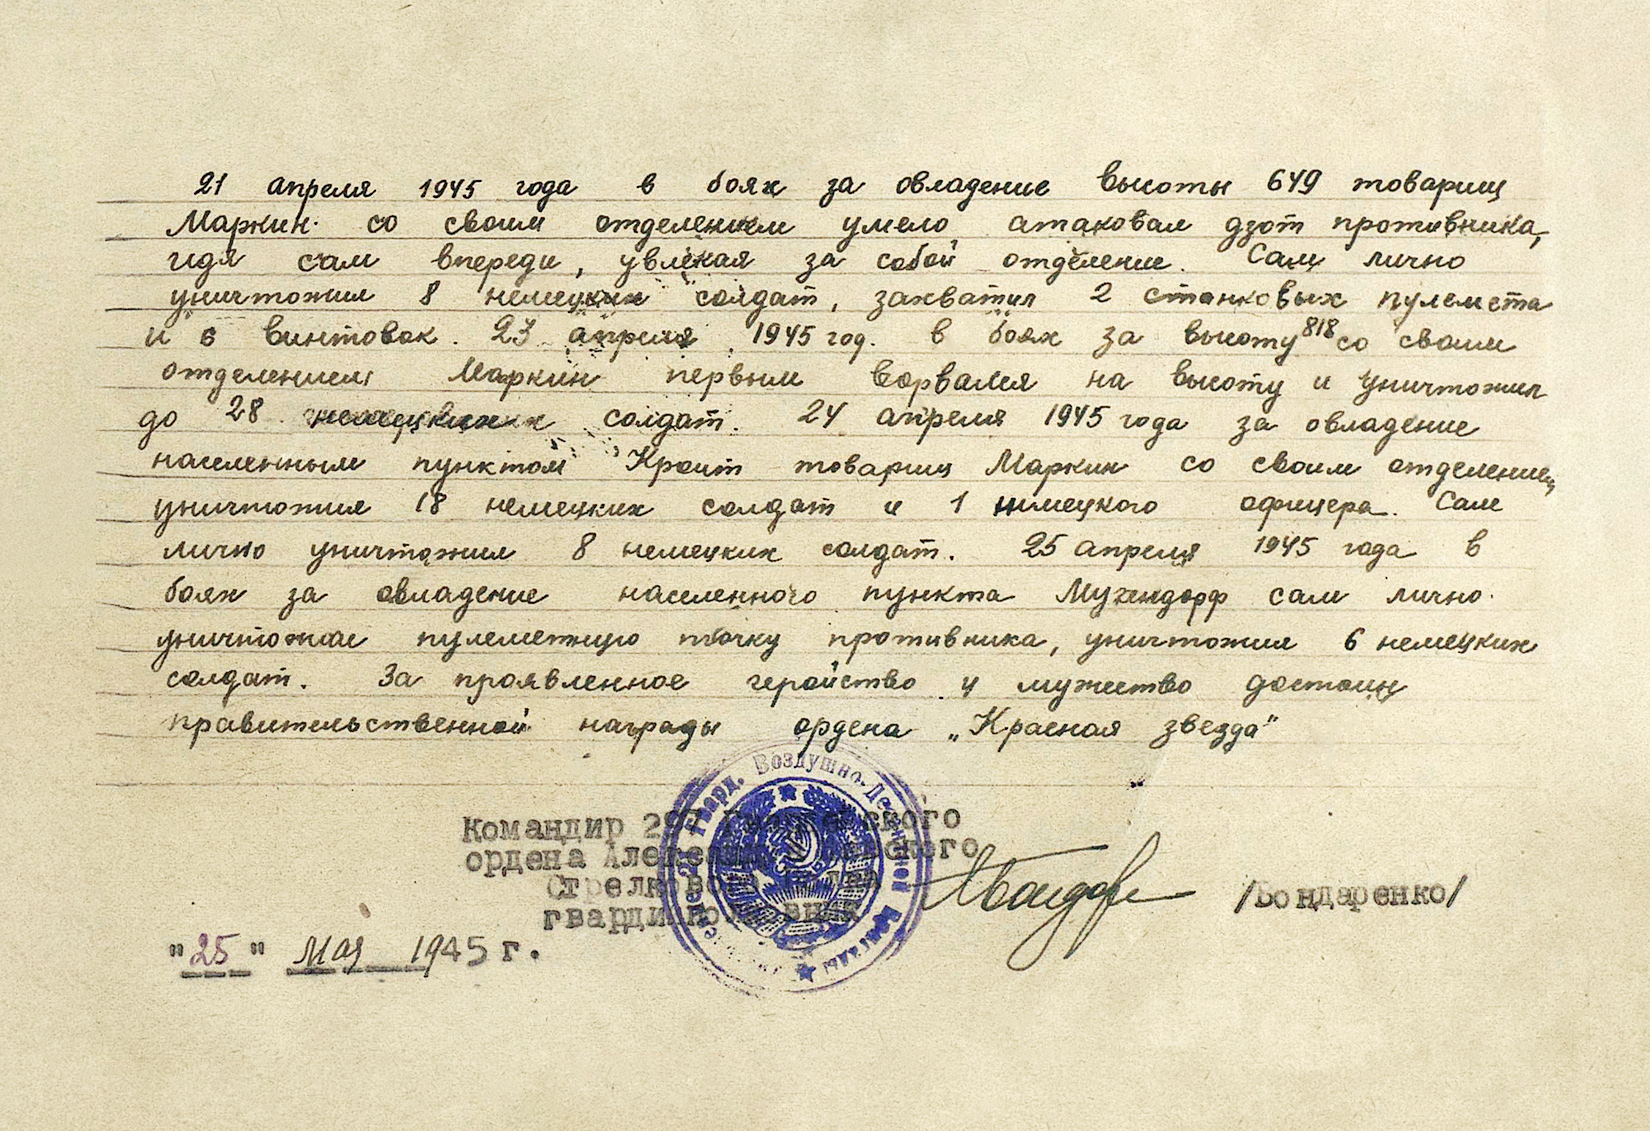 21 апреля 1945 года в боях за овладение высоты 649 товарищ
Маркин со своим отделением умело атаковал дзот противника,
идя сам впереди, увлекая за собой отделение. Сам лично
уничтожил 8 немецких солдат, захватил 2 станковых пулемета
и 6 винтовок. 23 апреля 1945 год. в боях за высоту 818 со своим
отделением Маркин первым ворвался на высоту и уничтожил
до 28 немецких солдат. 24 апреля 1945 года за овладение
населенным пунктом Кроит товарищ Маркин со своим отделением
уничтожил 18 немецких солдат и 1 немецкого офицера. Сам
лично уничтожил 8 немецких солдат. 25 апреля 1945 года в
боях за овладение населенного пункта сам лично
уничтожил пулеметную точку противника, уничтожил 6 немецких
солдат. За проявленное геройство и мужество достоин
правительственной награды ордена „Красная звезда"
Гвард. Воздушно-Десантной Бригады
Командир
ордена
Стрелкового
гвардии
/Бондаренко/
"25" Мая 1945 г.